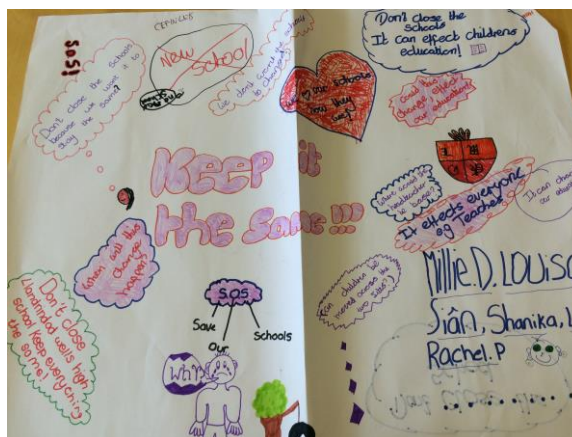 sos!
Don't close the schools
because we want it to
stay the same?
New
School
we don't want the schools
to change!
Don't close the
schools
It can effect childrens
education!
We ♥ our schools
how they
are!
Could this
change effect
our education?
Keep it
the same!!!
Where would the
headteacher
be base?
It effects everyone
eg Teaches
It can
When will this
change
happen?
Don't close
Llandrindod wells high
school Keep everything
the same!
S.O.S
Save
Our
Schools
Why
Can children be
moved across the
two sites?
Millie.D. Louisa
Siân, Shanika, L
Rachel.P